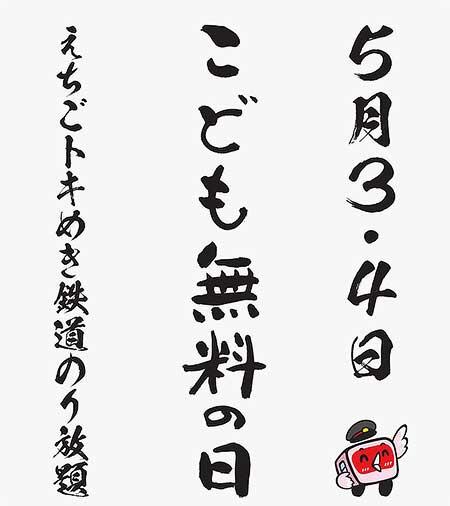 5月3・4日
こども無料の日
えちごトキめき鉄道のり放題